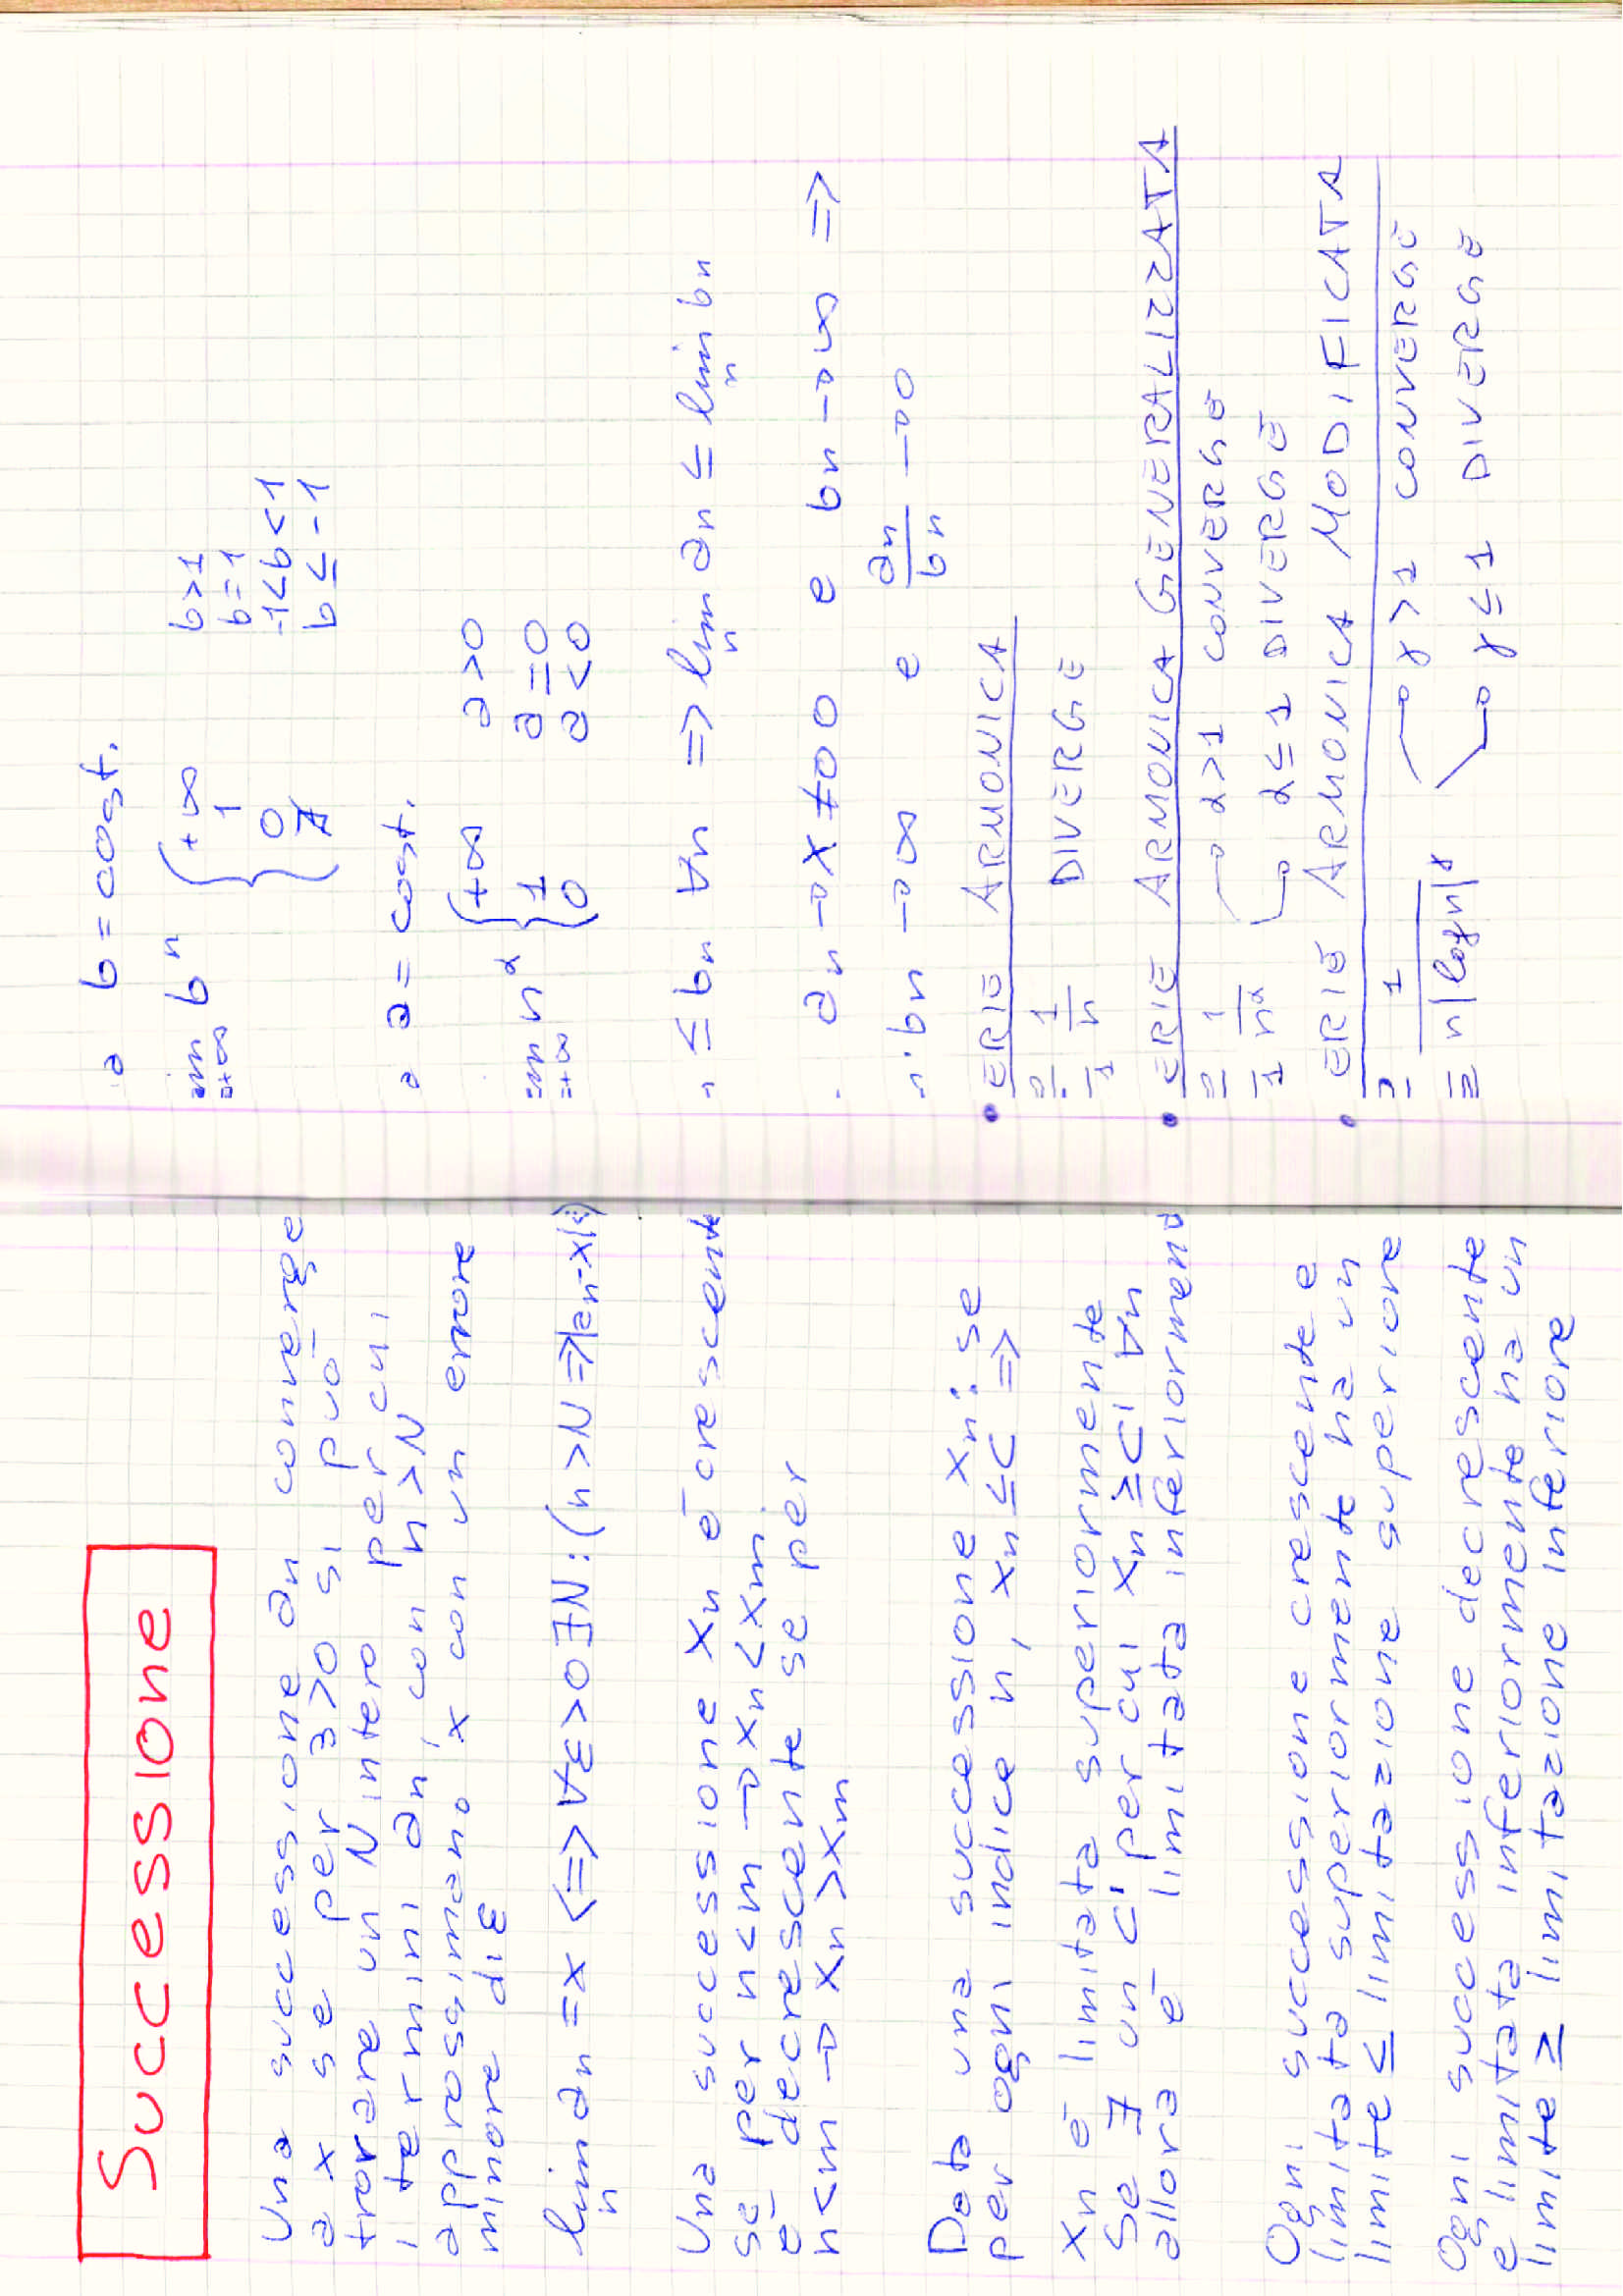 Successione
Una successione an converge
a x se per ∃>0 si può
trovare un N intero per cui
i termini an, con n>N
approssimano x con un errore
minore di ε
lim an = x <=> ∀ε>0 ∃N:(n>N=>|an-x|<
n
Una successione xn è crescente
se per n<m → xn<xm
è decrescente se per
n<m → xn>xm
Data una successione xn: se
per ogni indice n, xn ≤C =>
xn è limitata superiormente
Se ∃ un C' per cui xn ≥C' ∀n
allora è limitata inferiorment
Ogni successione crescente e
limitata superiormente ha un
limite ≤ limitazione superiore
Ogni successione decrescente
e limitata inferiormente ha un
limite ≥ limitazione inferiore
a b=cost.
im b^n { +∞ b>1
1 b=1
0 -1<b<1
∄ b≤-1
a a=cost.
im n^α { +∞ a>0
1 a=0
0 a<0
n ≤ bn ∀n => lim an ≤ lim bn
n n
an → x≠0 e bn → ∞ =>
n·bn → ∞ e an/bn → 0
• ERIE ARMONICA
1/n DIVERGE
• ERIE ARMONICA GENERALIZZATA
1/n^α → α>1 CONVERGE
→ α≤1 DIVERGE
• ERIE ARMONICA MODIFICATA
1/n|logn|^γ → γ>1 CONVERGE
→ γ≤1 DIVERGE